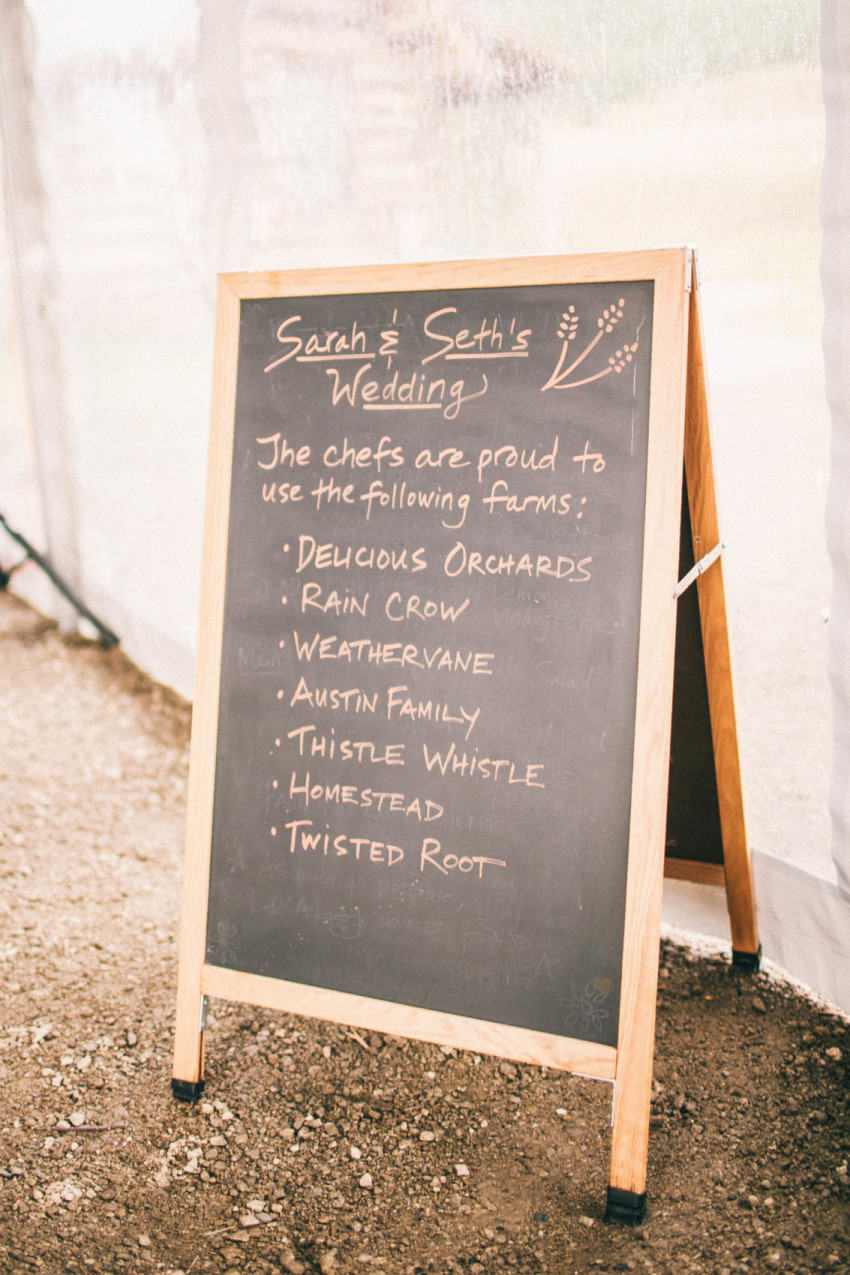 Sarah & Seth's
Wedding
The chefs are proud to
use the following farms:
• DELICIOUS ORCHARDS
• RAIN CROW
• WEATHERVANE
• AUSTIN FAMILY
• THISTLE WHISTLE
• HOMESTEAD
• TWISTED ROOT